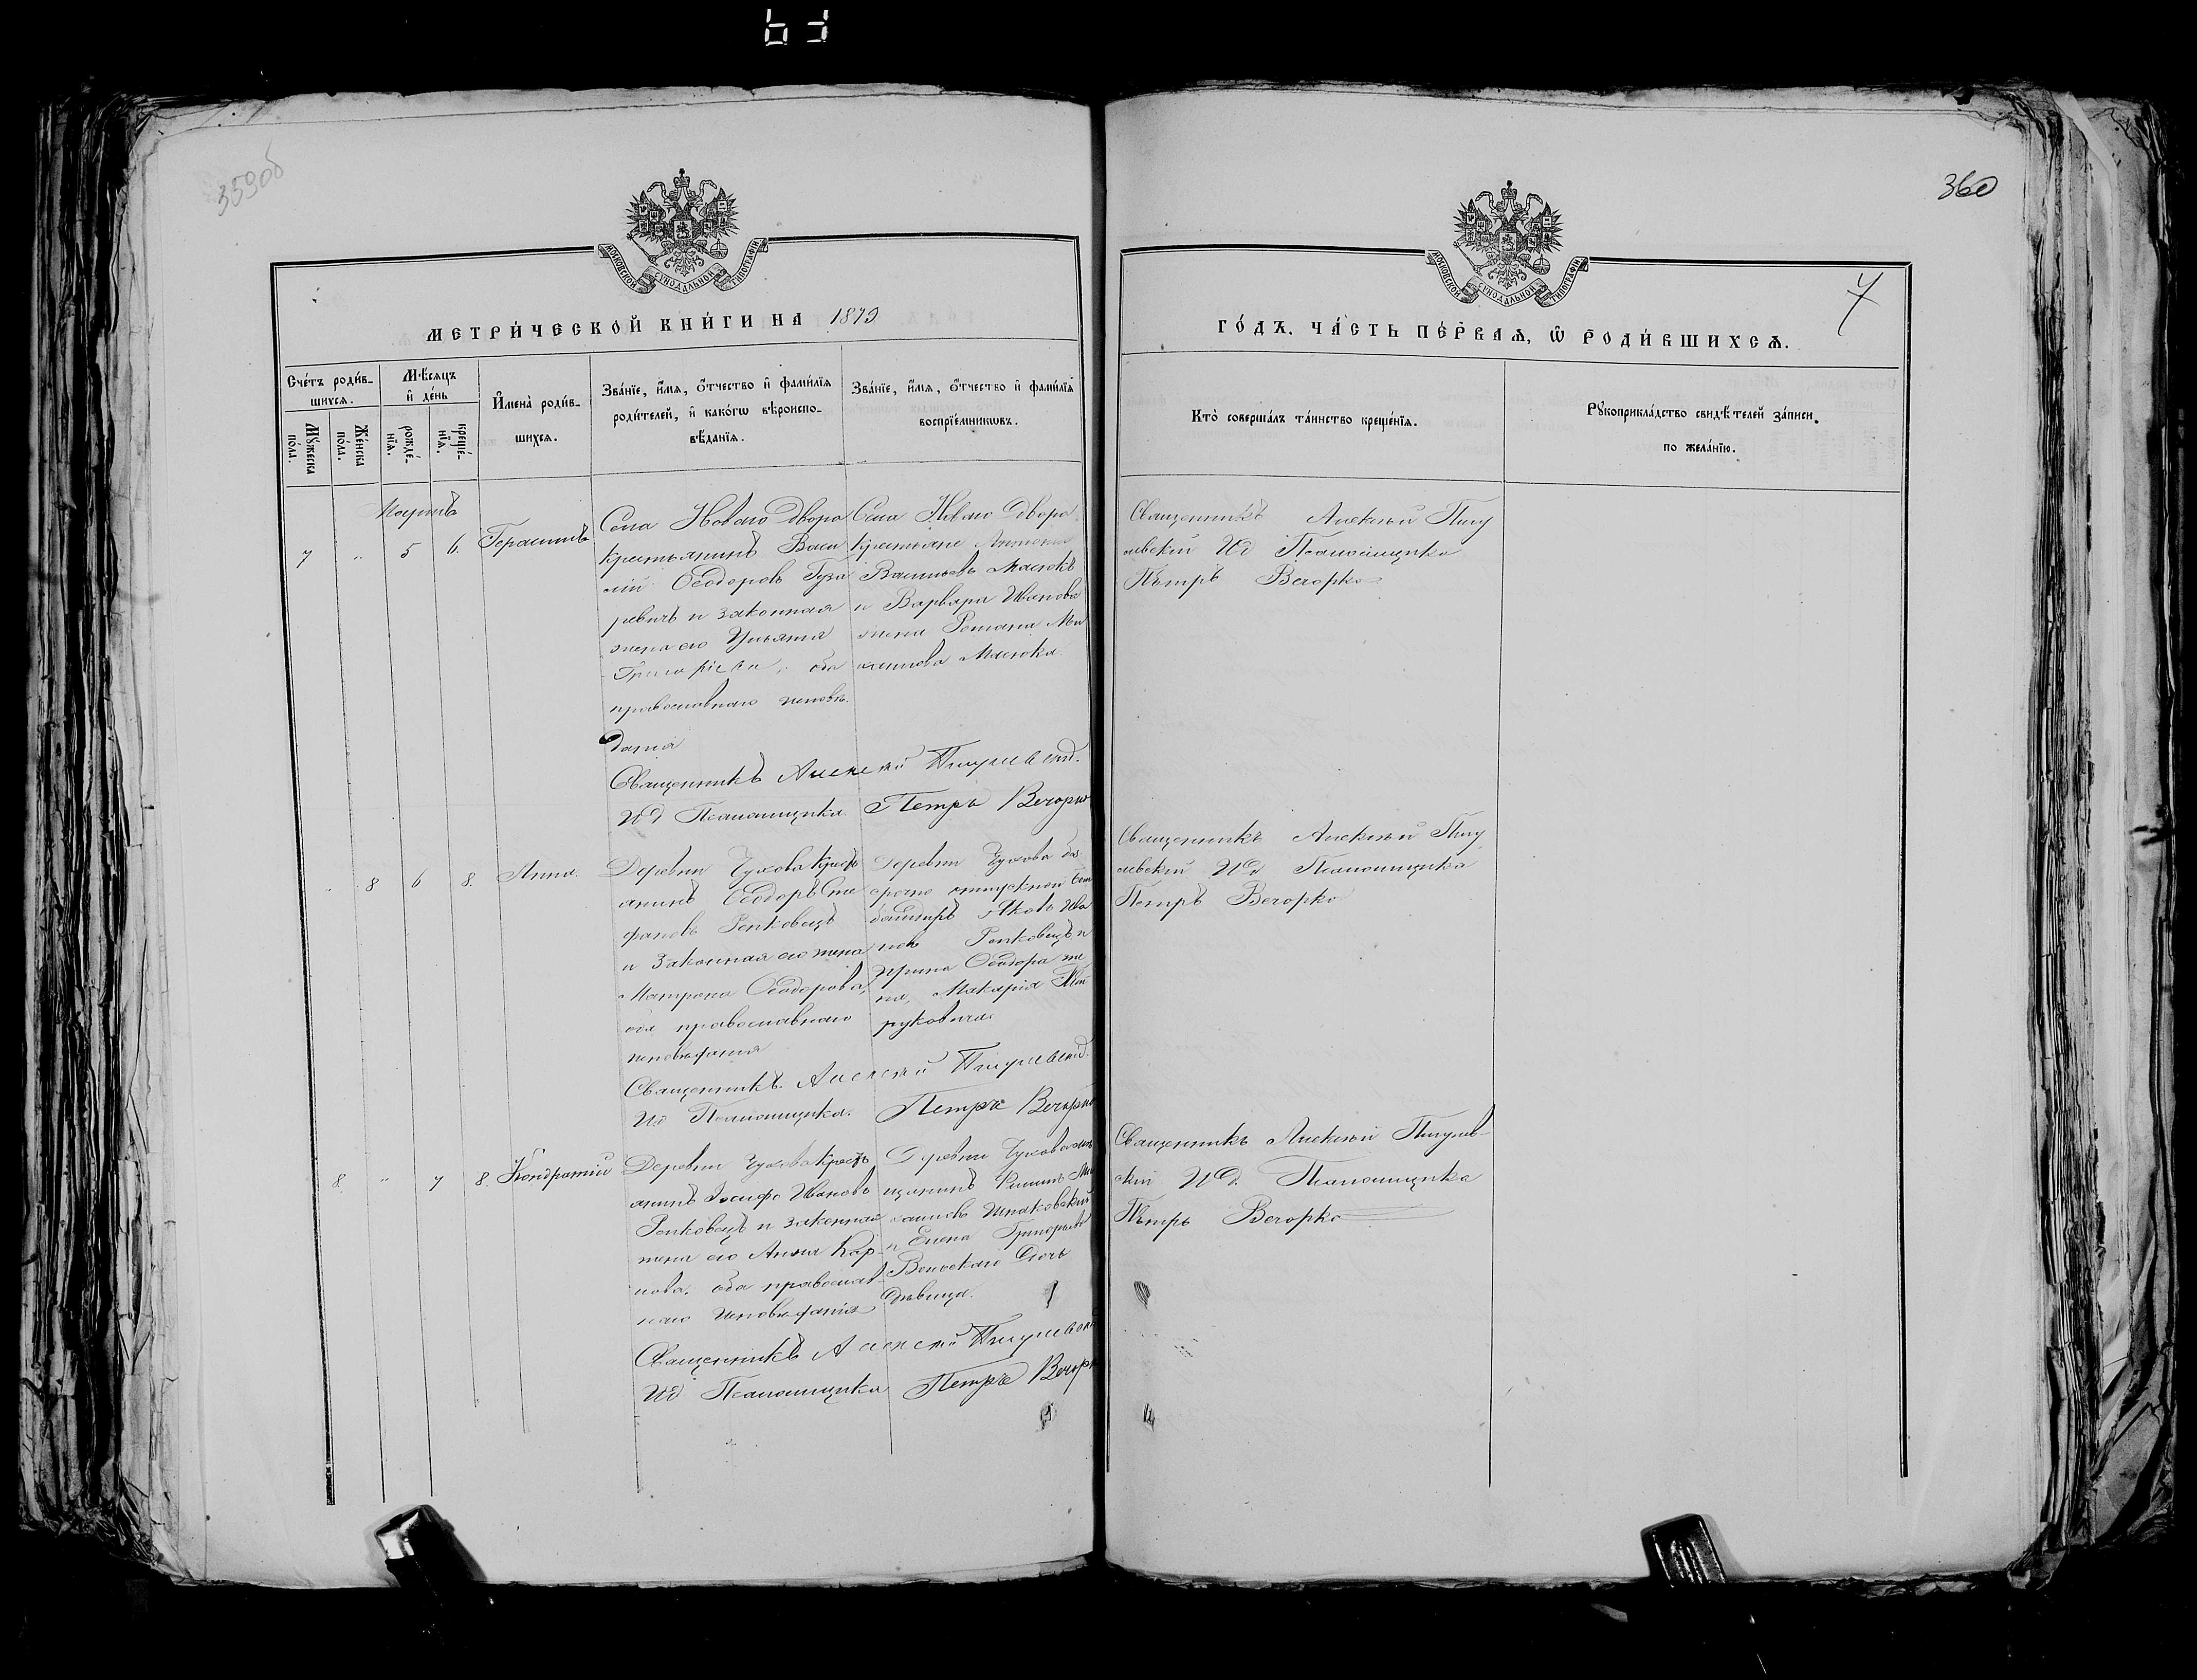 359об
360
7
МОСКОВСКОЙ СУНОДАЛЬНОЙ ТИПОГРАФІИ
МОСКОВСКОЙ СУНОДАЛЬНОЙ ТИПОГРАФІИ
МЕТРИ́ЧЕСКОЙ КНИ́ГИ НА 1879
ГО́ДЪ. ЧА́СТЬ ПЕ́РВАЯ, Ѡ РОДИ́ВШИХСЯ.
Сче́тъ роди́в-
шихся.
Мѣ́сяцъ
и де́нь
Имена̀ роди́в-
шихся.
Зва́нїе, и́мя, о́тчество и фами́лїя
роди́телей, и како́гѡ вѣроиспо-
вѣ́данїя.
Зва́нїе, и́мя, о́тчество и фами́лїя
воспрїе́мникѡвъ.
Кто̀ соверша́лъ та́инство креще́нїя.
Рукоприкла́дство свидѣ́телей за́писи
по жела́нїю.
Мужеска
пола.
Же́нска
по́ла.
рожде́-
нїя.
креще́-
нїя.
Мартъ
7 " 5 6. Герасимъ
Села Новаго Двора
крестьянинъ Васи
лій Ѳеодоровъ Гуза
ревичъ и законная
жена его Ульяна
Григорьева, оба
православнаго исповѣ
данія
Села Новаго Двора
крестьяне
Васильевъ Масюкъ
и Варвара Иванова
жена Романа Ми
хаилова Масюка
Священникъ Алексѣй Пигулевскій.
ИД Псаломщика Петръ Вечорко
Священникъ Алексѣй Пигу
левскій ИД Псаломщика
Петръ Вечорко
" 8 6 8. Анна.
Деревни Чухова крестъ
янинъ Ѳеодоръ Сте
фановъ Репковецъ
и законная его жена
Матрона Ѳеодорова,
оба православнаго
исповѣданія
Деревни Чухова без
срочно отпускной
Яковъ Ива
новъ Репковецъ и
Ирина Ѳеодора же
на, Макарія
руковича
Священникъ Алексѣй Пигулевскій.
ИД Псаломщика. Петръ Вечорко
Священникъ Алексѣй Пигу
левскій ИД Псаломщика
Петръ Вечорко
8. " 7 8. Кондратій
Деревни Чухова крестъ
янинъ Іосифъ Ивановъ
Репковецъ и законная
жена его Анна Кар-
пова, оба православ-
наго исповѣданія
Деревни Чухова
щанинъ Ми
хаиловъ Шпаковскій
и Елена Григорьева
дочь
дѣвица.
Священникъ Алексѣй Пигулевскій
ИД Псаломщика Петръ Вечорко
Священникъ Алексѣй Пигулев-
скій ИД. Псаломщика
Петръ Вечорко